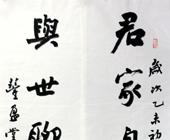 歲次乙未初
君家自
與世聊